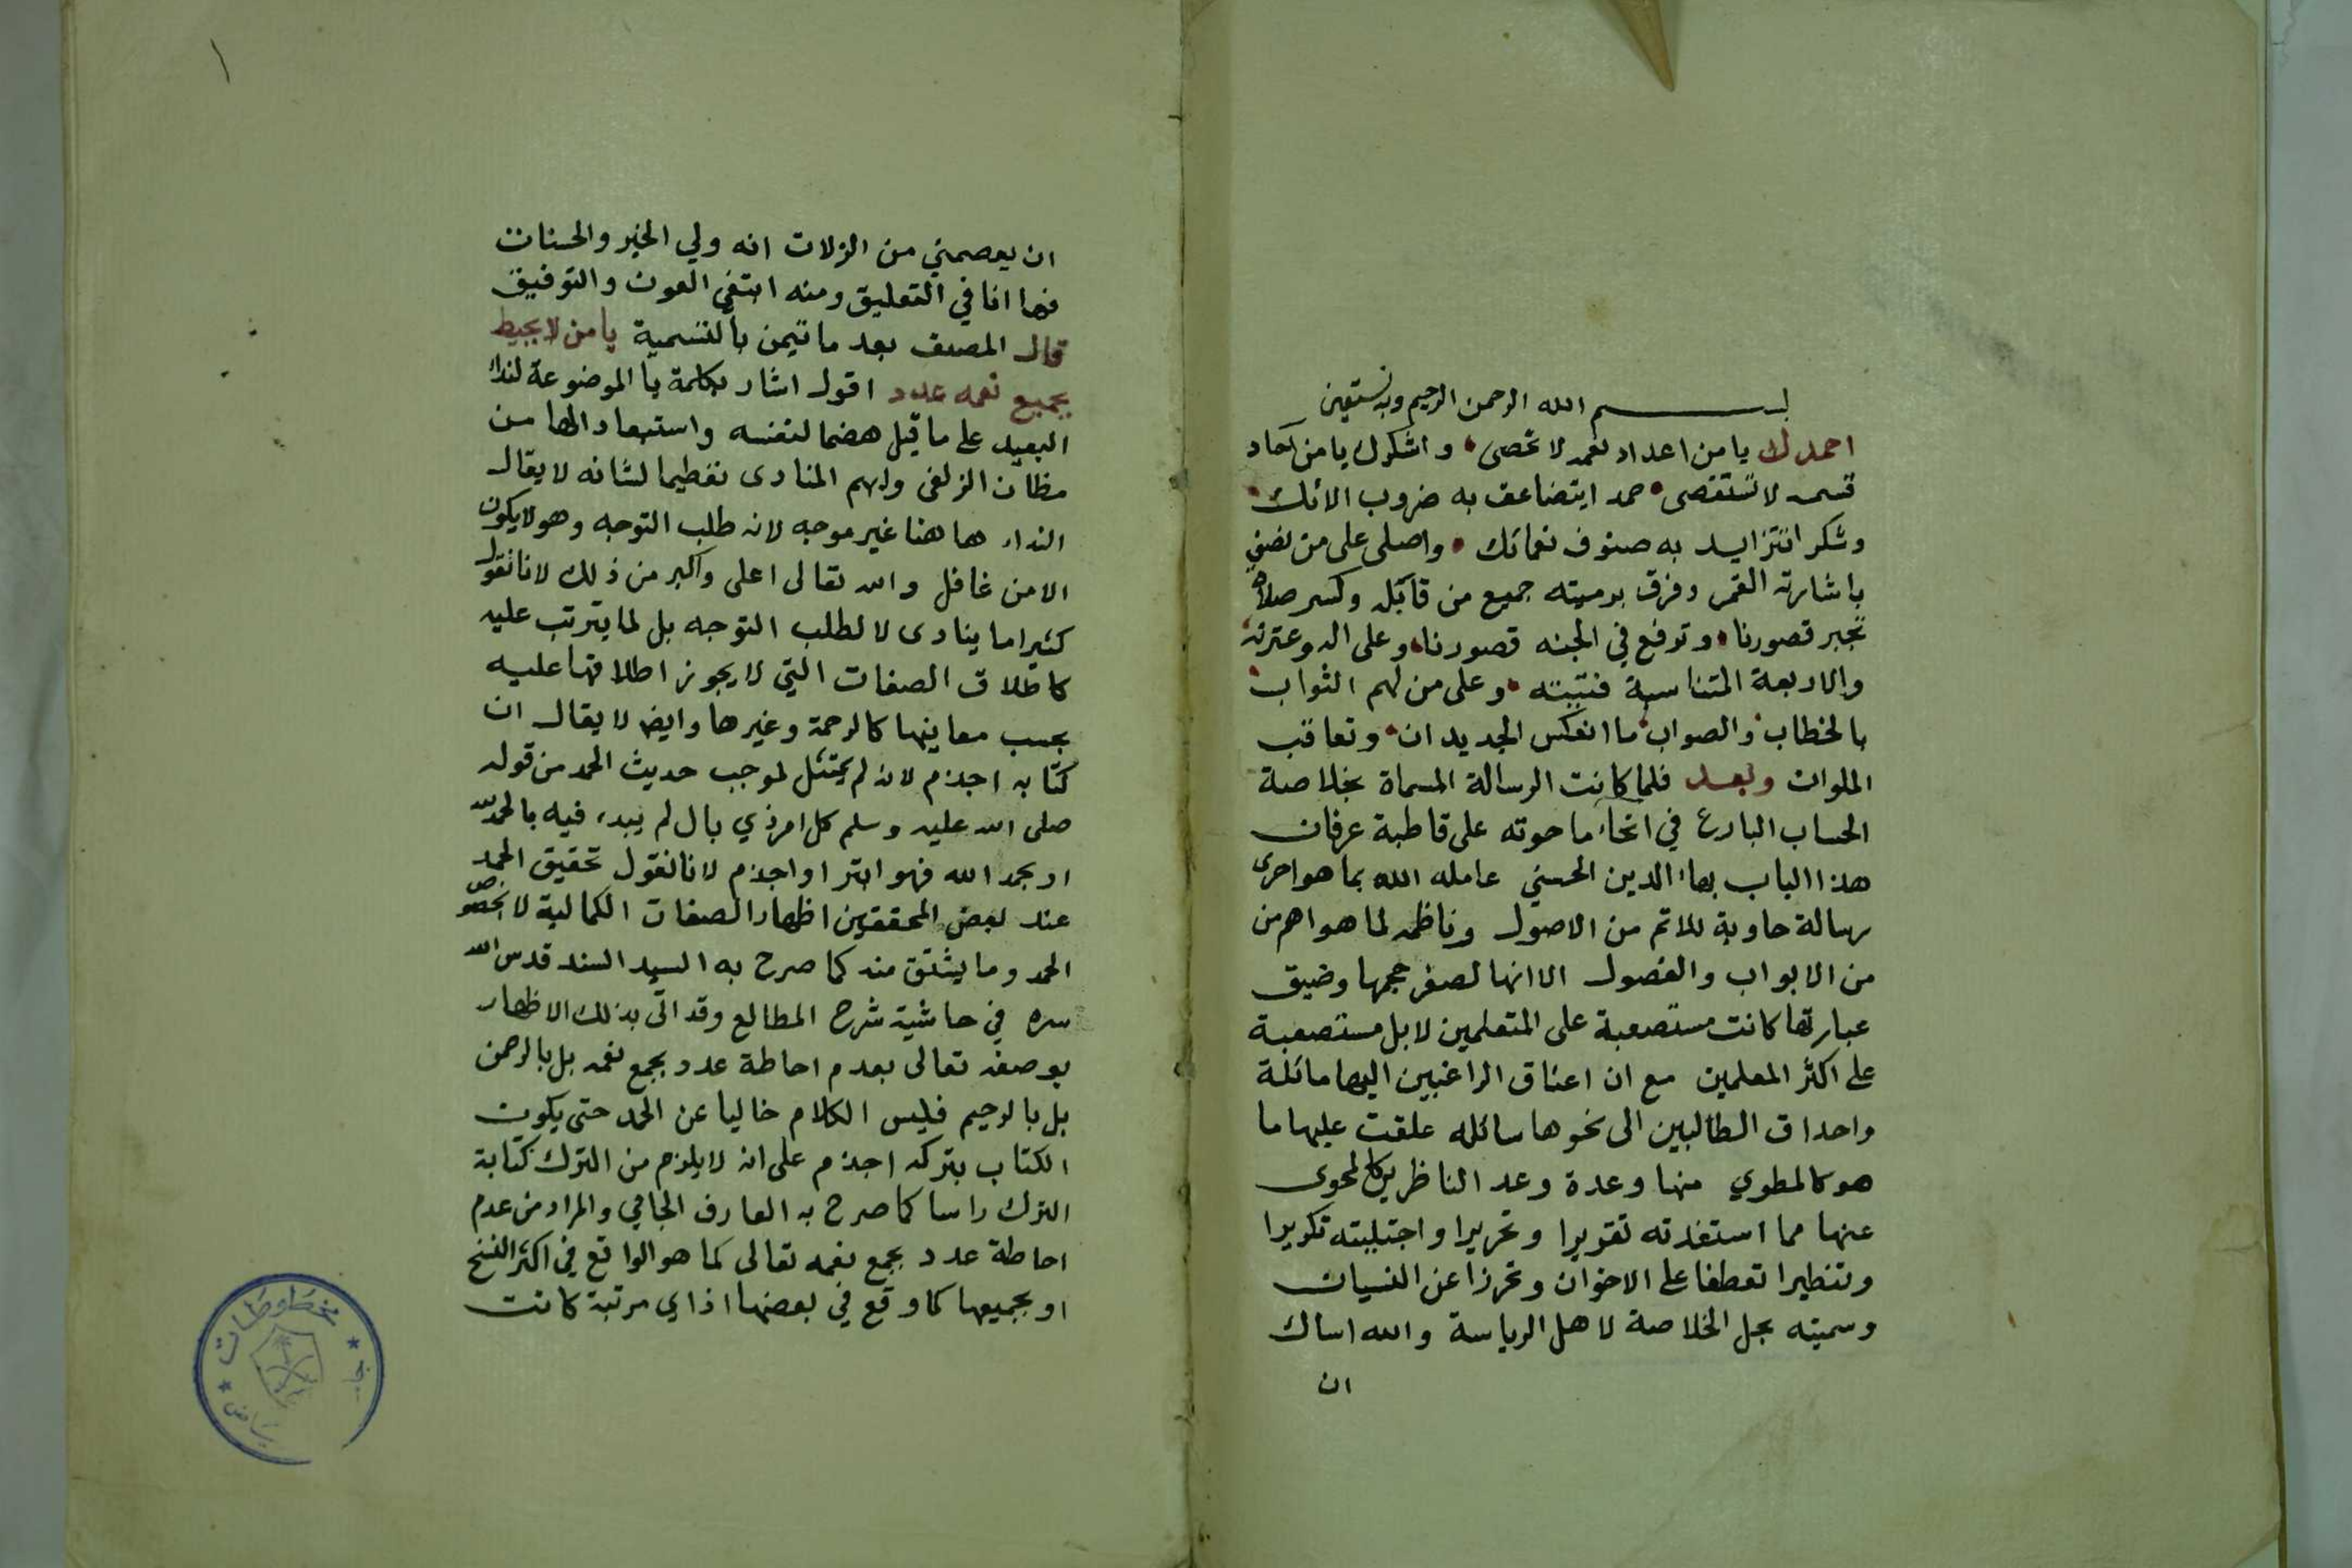 بسم الله الرحمن الرحيم وبه نستعين
احمدك يا من اعداد نعمه لا تحصى واشكرك يا من آحاد
قسمه لا تستقصى حمدا يتضاعف به ضروب الائك
وشكرا تتزايد به صنوف نعمائك واصلى على من نصف
باشارته القمر وفرق برميته جميع من قاتله وكسر صلاة
تجبر قصورنا وترفع في الجنه قصورنا وعلى اله وعترته
والاربعة المتناسبة فتيبته وعلى من لهم الثواب
بالخطاب والصواب ما انعكس الجديدان وتعاقب
الملوان وبعد فلما كانت الرسالة المسماة بخلاصة
الحساب البارع في انحاء ما حوته على قاطبة عرفان
هذا الباب بهاء الدين الحسني عامله الله بما هو احرى
رسالة حاوية للاتم من الاصول وناظمه لما هو اهم من
من الابواب والفصول الا انها لصغر حجمها وضيق
عبارتها كانت مستصعبة على المتعلمين لا بل مستصعبة
على اكثر المعلمين مع ان اعناق الراغبين اليها مائلة
واحداق الطالبين الى نحوها سائله علقت عليها ما
هو كالمطوي منها وعدة وعد الناظرين كالمحوى
عنها مما استفدته تقريرا وتحريرا واجتلبته تكريرا
وتنظيرا تعطفا على الاخوان وتحرزا عن النسيان
وسميته بحل الخلاصة لاهل الرياسة والله اسال
ان
١
ان يعصمني من الزلات انه ولي الخير والحسنات
فها انا في التعليق ومنه ابتغي العون والتوفيق
قال المصنف بعد ما تيمن بالتسمية يا من لا يحيط
بجميع نعمه عدد اقول اشار بكلمة يا الموضوعة لنداء
البعيد على ما قيل هضما لنفسه واستبعادا لها من
مظان الزلفى ولهم المنادى تعظيما لشانه لا يقال
النداء ها هنا غير موجه لانه طلب التوجه وهو لا يكون
الا من غافل والله تعالى اعلى واكبر من ذلك لانا نقول
كثيرا ما ينادى لا لطلب التوجه بل لما يترتب عليه
كاطلاق الصفات التي لا يجوز اطلاقها عليه
بحسب معانيها كالرحمة وغيرها وايض لا يقال ان
كتابه اجذم لانه لم يمتثل لموجب حديث الحمد من قوله
صلى الله عليه وسلم كل امر ذي بال لم يبدء فيه بالحمد لله
او بحمد الله فهو ابتر او اجذم لانا نقول تحقيق الحمد
عند بعض المحققين اظهار الصفات الكمالية لا بخصوص
الحمد وما يشتق منه كما صرح به السيد السند قدس الله
سره في حاشية شرح المطالع وقد اتى بذلك الاظهار
بوصفه تعالى بعدم احاطة عدد بجمع نعمه بل بالرحمن
بل بالرحيم فليس الكلام خاليا عن الحمد حتى يكون
الكتاب بتركه اجذم على انه لا يلزم من الترك كتابة
الترك راسا كما صرح به العارف الجامي والمراد من عدم
احاطة عدد بجمع نعمه تعالى كما هو الواقع في اكثر النسخ
او بجميعها كما وقع في بعضها اذ اي مرتبة كانت
مخطوطات